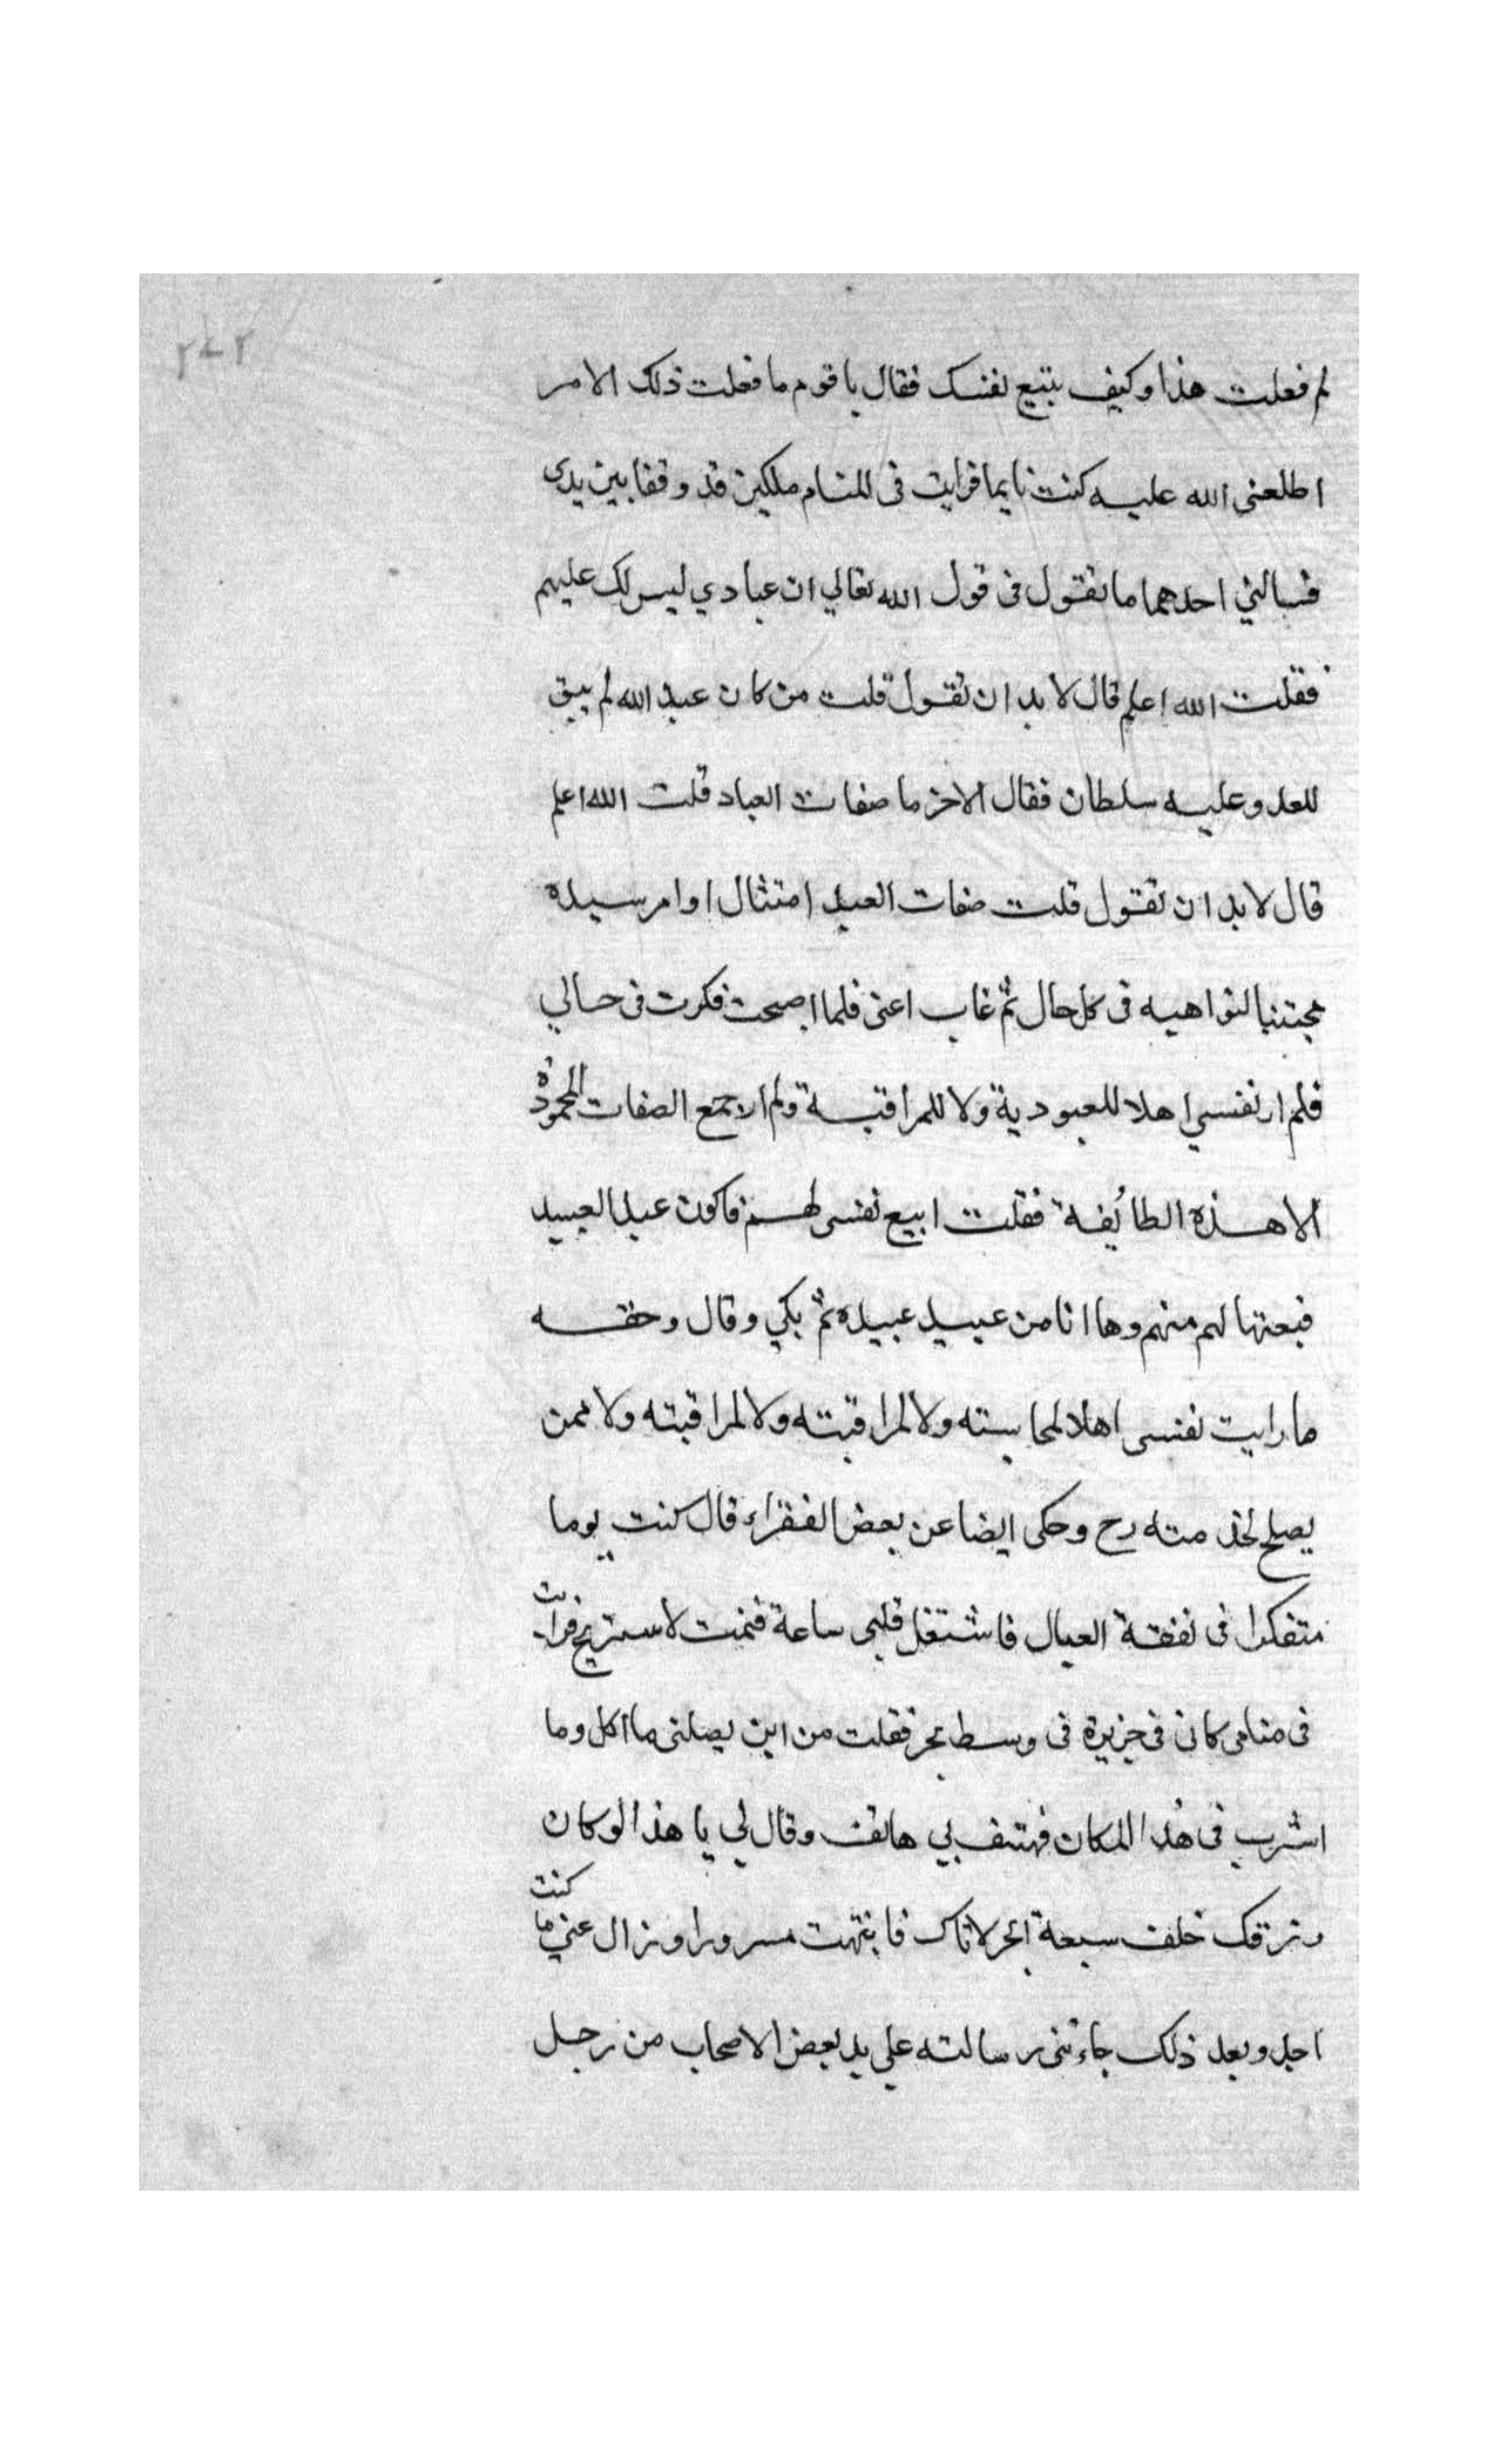 ٢٤٢
لم فعلت هذا وكيف بتبيع نفسك فقال يا قوم ما فعلت ذلك الا لامر
اطلعنى الله عليه كنت نايما فرايت فى المنام ملكين قد وقفا بين يدى
فسالني احدهما ما تقول فى قول الله تعالي ان عبادي ليس لك عليهم
فقلت الله اعلم قال لا بد ان تقول قلت من كان عبد الله لم يبق
للعدو عليه سلطان فقال الاخر ما صفات العباد قلت الله اعلم
قال لا بد ان تقول قلت صفات العبد امتثال اوامر سيده
مجتنبا لنواهيه فى كل حال ثم غاب اعنى فلما اصبحت فكرت فى حالي
فلم ار نفسي اهلا للعبودية ولا للمراقبة ولم ار جمع الصفات المحمودة
الا هذه الطائفة فقلت ابيع نفسى لهم فاكون عبد العبيد
فبعتها لهم منهم وها انا من عبيد عبيده ثم بكي وقال وحقه
ما رايت نفسى اهلا لمحاسبته ولا لمراقبته ولا لمراقبته ولا ممن
يصلح لخدمته رح وحكى ايضا عن بعض الفقراء قال كنت يوما
متفكرا فى نفقة العيال فاشتغل قلبى ساعة فنمت لاستريح فرايت
فى منامى كانى فى جزيرة فى وسط بحر فقلت من اين يصلنى ما اكل وما
اشرب فى هذا المكان فهتف بي هاتف وقال لي يا هذا لو كان
رزقك خلف سبعة ابحر لاتاك فانتبهت مسرورا وزال عني ما كنت
اجد وبعد ذلك جاءتنى رسالته علي يد بعض الاصحاب من رجل